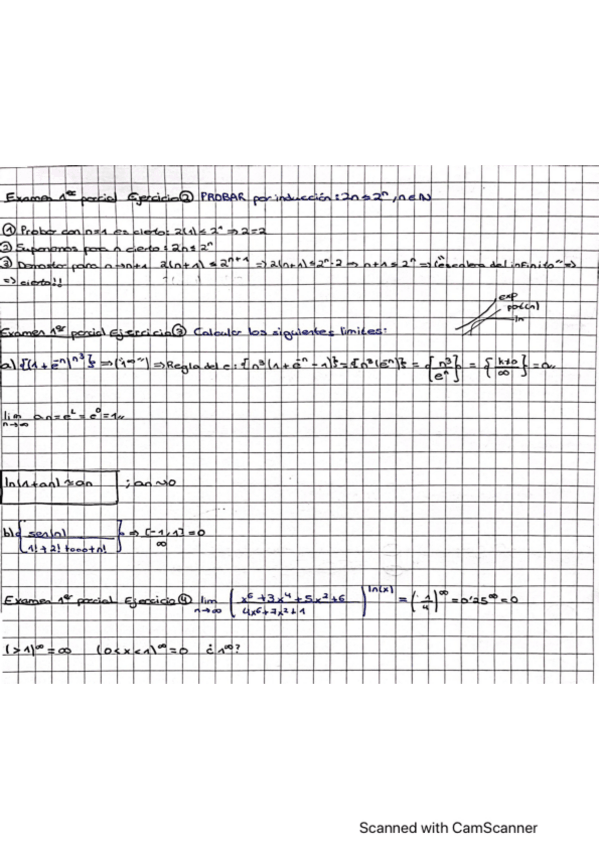 Examen 1er parcial Ejercicio ② PROBAR por inducción: 2n ≤ 2ⁿ, n∈N
① Probar con n=1 es cierto: 2(1) ≤ 2¹ ⇒ 2=2
② Suponemos para n cierto: 2n ≤ 2ⁿ
③ Demostrar para n→n+1 2(n+1) ≤ 2ⁿ⁺¹ ⇒ 2(n+1) ≤ 2ⁿ·2 ⇒ n+1 ≤ 2ⁿ ⇒ "escalera del infinito" ⇒
⇒ cierto!!
exp
pol(n)
ln
Examen 1er parcial Ejercicio ③ Calcular los siguientes límites:
a) {(1+e⁻ⁿ)^n³} ⇒ (1^∞) ⇒ Regla del e: {n³(1+e⁻ⁿ-1)} = {n³(e⁻ⁿ)} = {n³/eⁿ} = {/∞} = 0
lim n→∞ an = e^L = e⁰ = 1
ln(1+an) ≈ an ; an→0
b) {sen(n)/(1!+2!+...+n!)} ⇒ [-1,1]/∞ = 0
Examen 1er parcial Ejercicio ④ lim n→∞ ((x⁶+3x⁴+5x²+6)/(4x⁶+7x²+1))^ln(x) = (1/4)^∞ = 0'25^∞ = 0
(>1)^∞ = ∞ (0<x<1)^∞ = 0 ¿1^∞?
Scanned with CamScanner